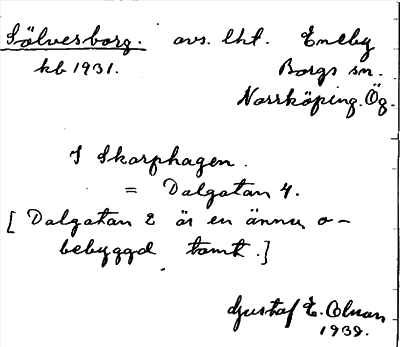 Sölvesborg. avs. lht. Eneby
kb 1931. Borgs sn.
Norrköping. Ög.
I Skarphagen.
= Dalgatan 4.
[Dalgatan 2 är en ännu o-
bebyggd tomt.]
Gustaf E. Olson
1938.